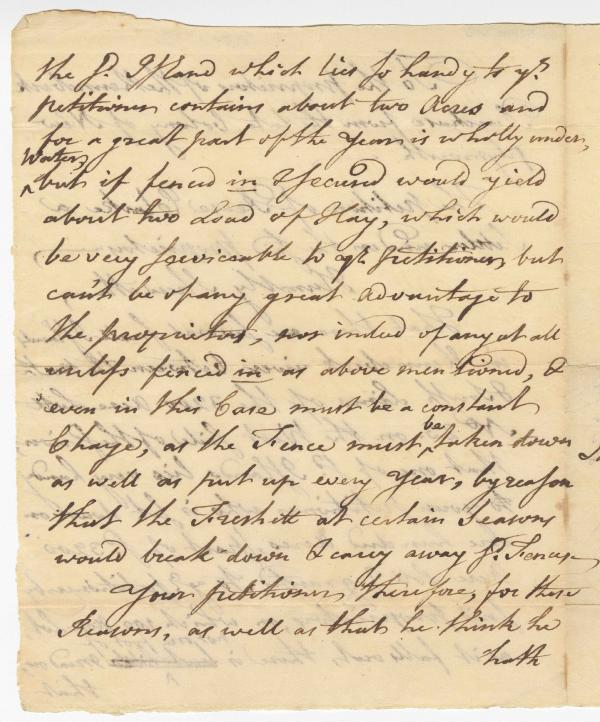 the sd. Island which lies so handy to yr.
petitioner contains about two Acres and
for a great part of the Year is wholly under
Water,
but if fenced in & secured would yield
about two Load of Hay, which would
be very serviceable to yr petitioner, but
can't be of any great Advantage to
the proprietors, nor indeed of any at all
unless fenced in as above mentioned, &
even in this Case must be a constant
Charge, as the Fence must be taken down
as well as put up every Year, by reason
that the Freshitt at certain Seasons
would break down & carry away sd. Fence
Your petitioner therefore, for these
Reasons, as well as that he think he
hath